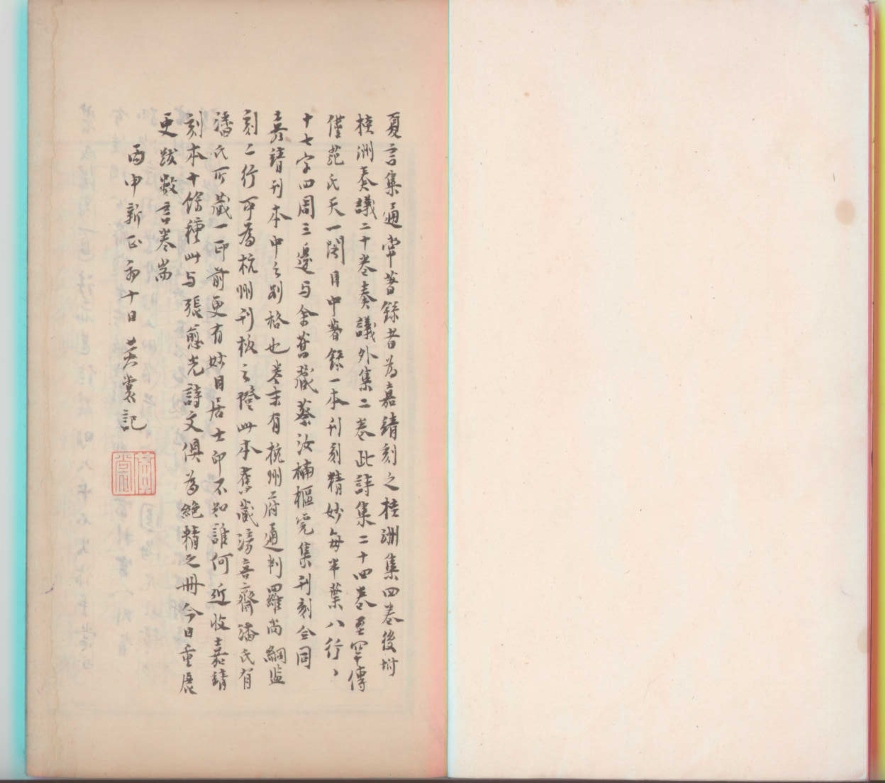 夏言集通常著錄者為嘉靖刻之桂洲集四卷後附
桂洲奏議二十卷奏議外集二卷此詩集二十四卷至罕傳
僅范氏天一閣目中著錄一本刊刻精妙每半葉八行、
十七字四周三邊与余舊藏蔡汝楠樞筦集刊刻全同
嘉靖刊本中之別格也卷末有杭州府通判羅尚絅監
刻二行可為杭州刊板之證此本舊藏潘氏有
潘氏所藏一印前更有妙目居士印不知誰何近收嘉靖
刻本十餘種此与張愈光詩文俱為絕精之冊今日重展
更跋數言卷耑
丙申新正初十日黃裳記
黃裳